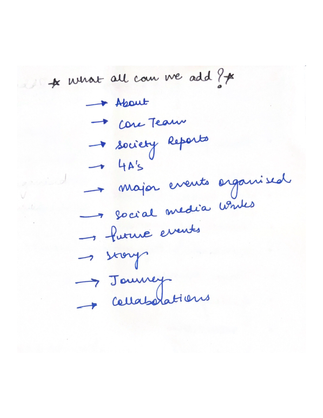 ☆ what all can we add? ☆
→ About
→ Core Team
→ Society Reports
→ 4A's
→ major events organised
→ social media links
→ future events
→ story
→ Journey
→ Collaborations